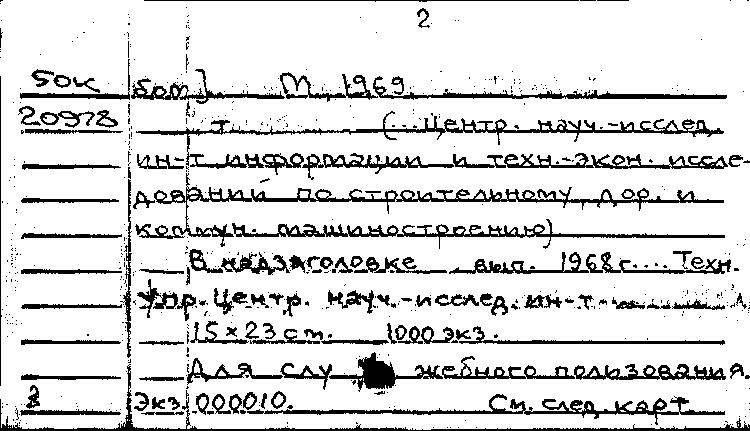 2
50к бот] М, 1969.
20978 т. (...Центр. науч.-исслед.
ин-т информации и техн.-экон. иссле-
дований по строительному, дор. и
коммун. машиностроению)
В надзаголовке вып. 1968 г.... Техн.
упр. Центр. науч.-исслед. ин-т
15×23 см. 1000 экз.
Для слу жебного пользования.
2 Экз. 000010. См. след. карт.